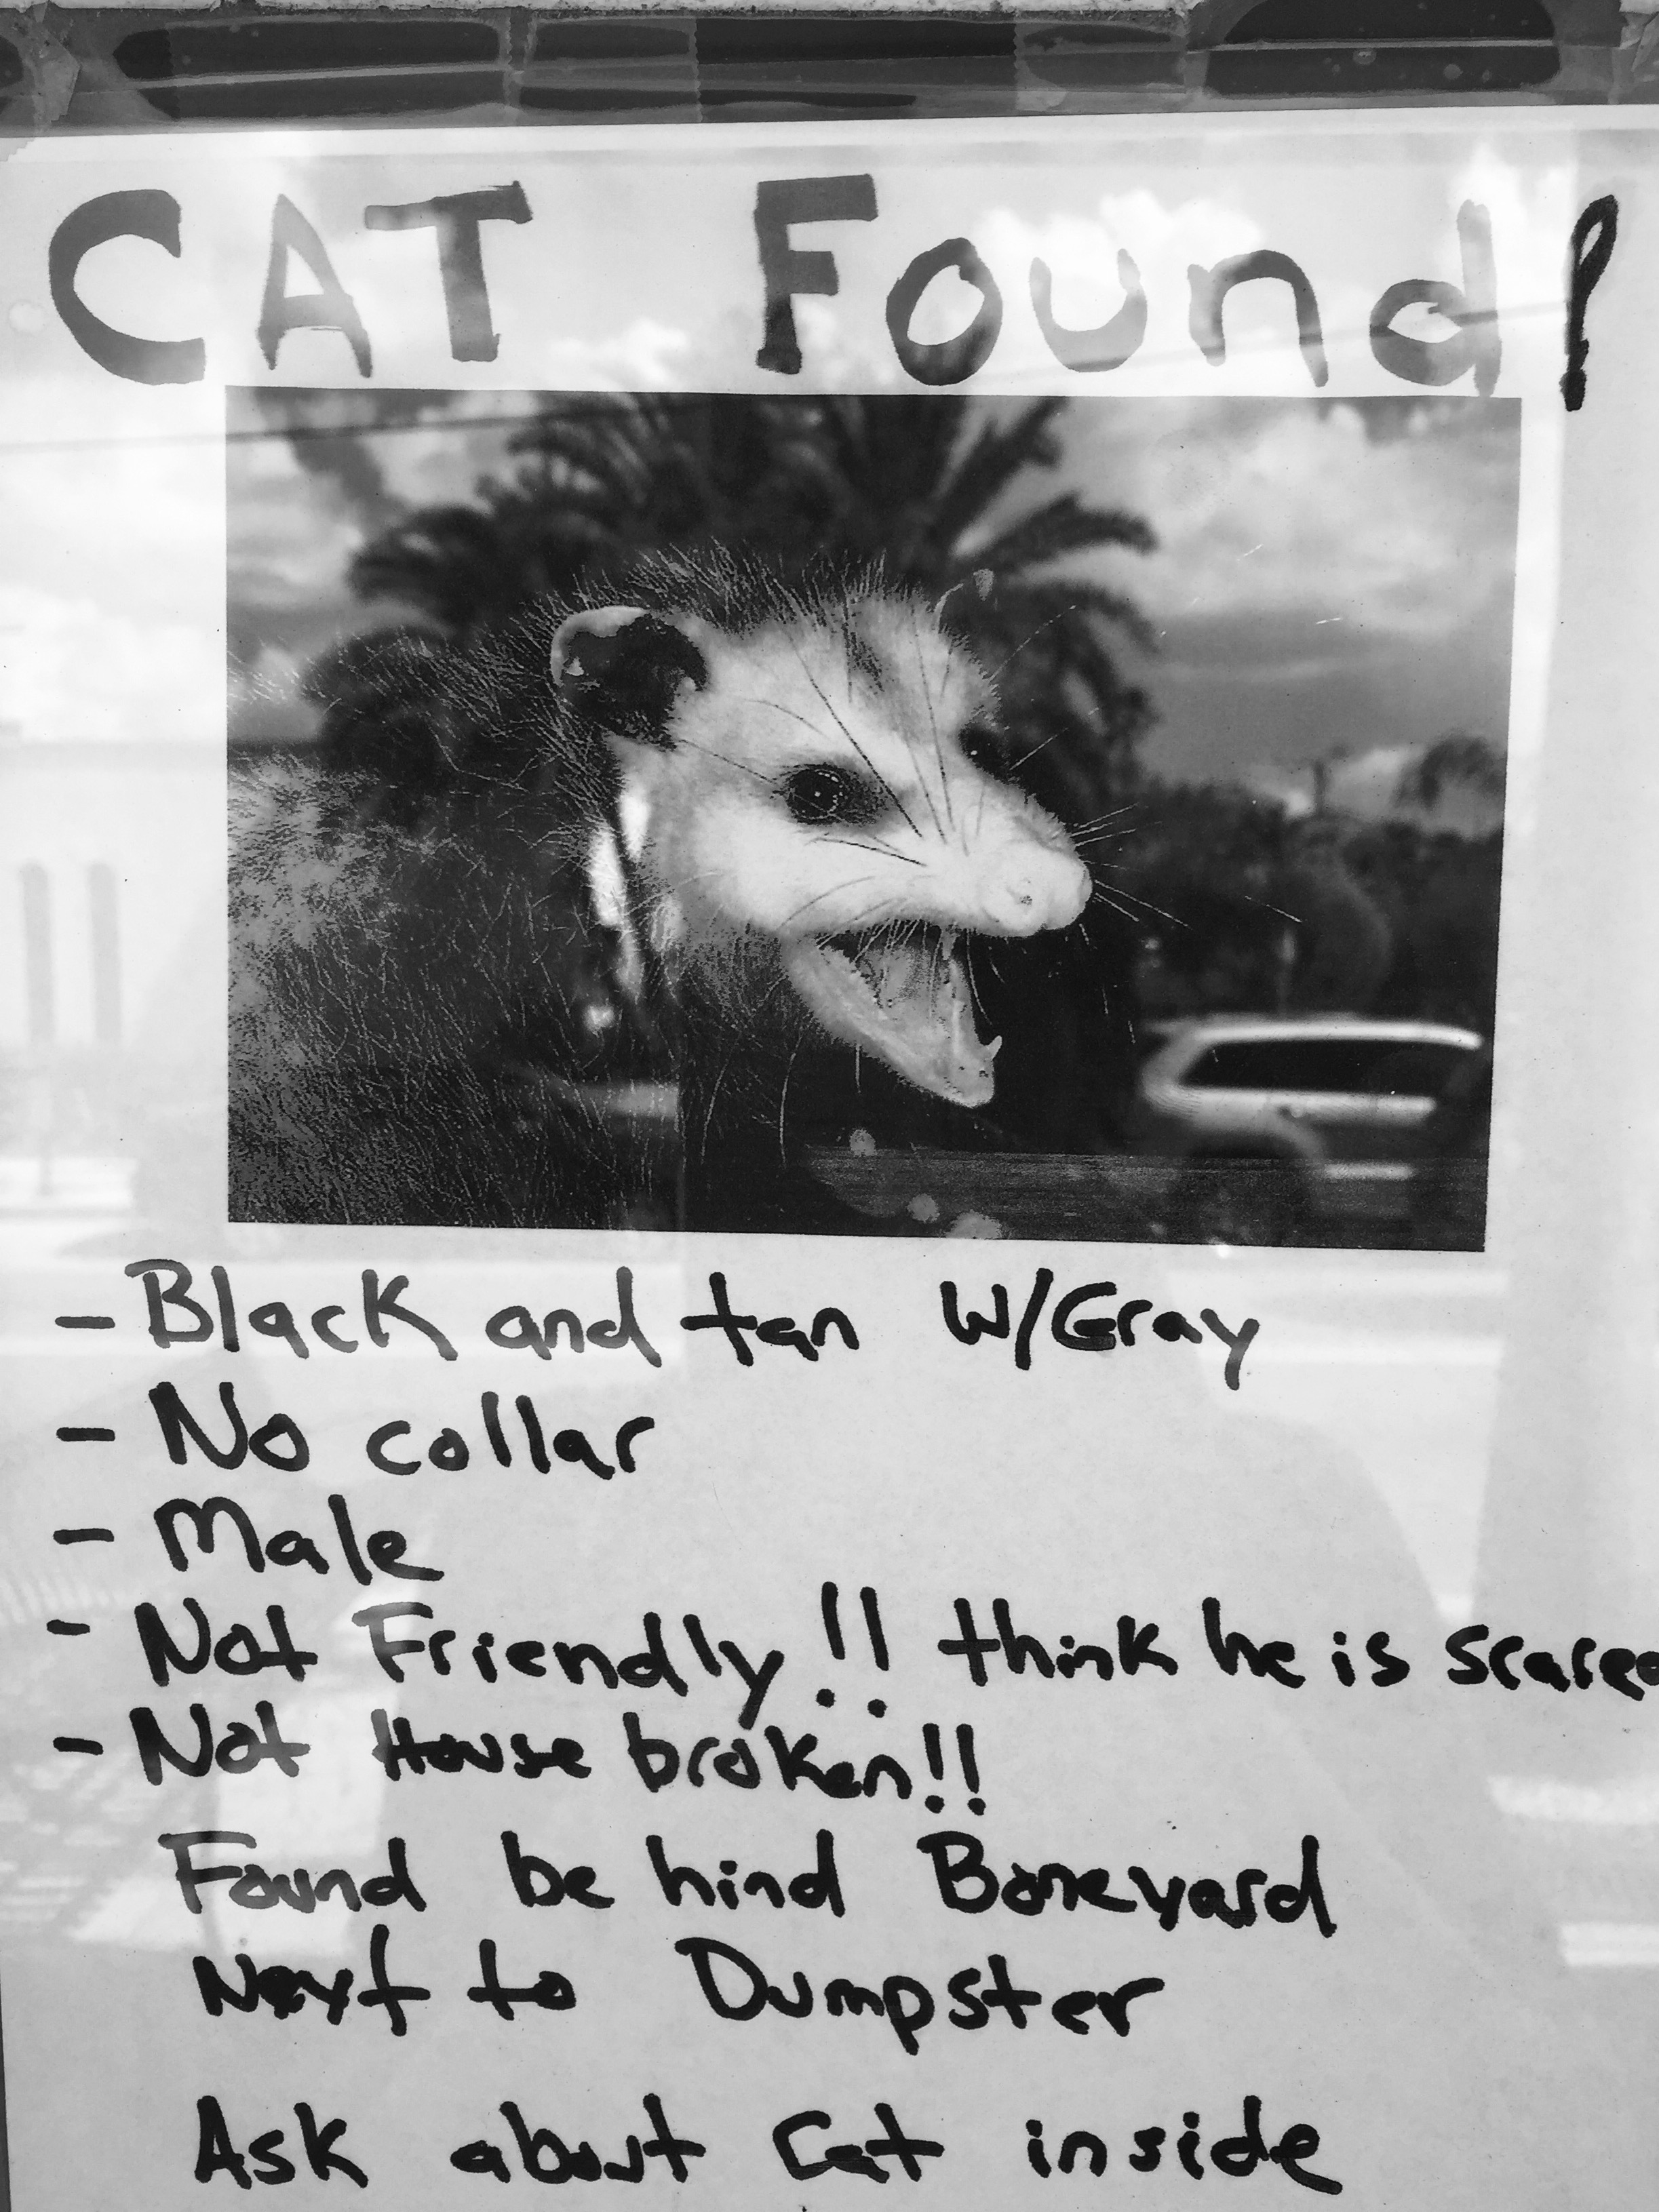 CAT Found!
- Black and tan W/Gray
- No collar
- Male
- Not Friendly!! think he is scared
- Not House broken!!
Found be hind Boneyard
Next to Dumpster
Ask about Cat inside